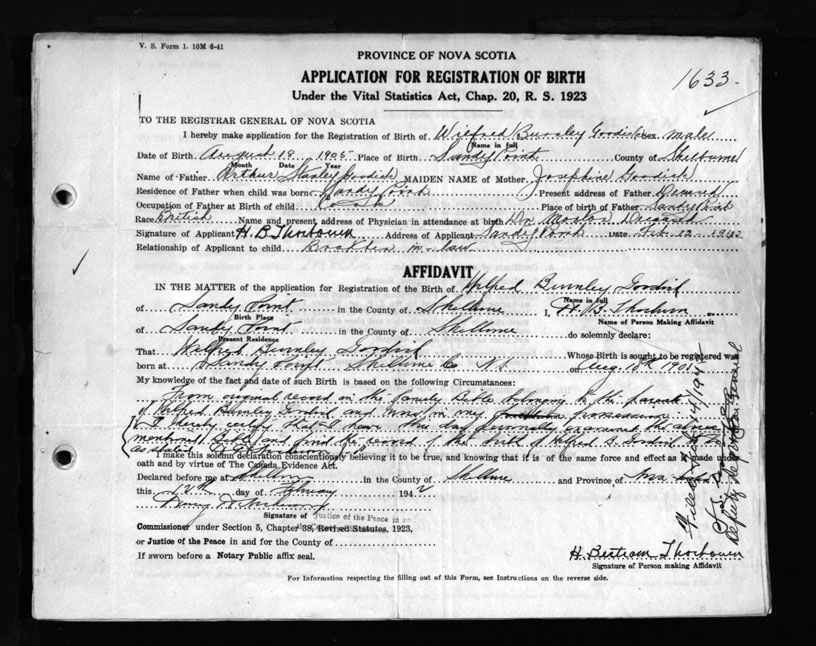 V. S. Form 1. 10M 6-41
PROVINCE OF NOVA SCOTIA
APPLICATION FOR REGISTRATION OF BIRTH
1633.
Under the Vital Statistics Act, Chap. 20, R. S. 1923
TO THE REGISTRAR GENERAL OF NOVA SCOTIA
I hereby make application for the Registration of Birth of Wilfred Burnley sex male
Name in full
Date of Birth August 19 1905 Place of Birth Sandy Point County of Shelburne
Month Date Year
Name of Father Arthur Stanley MAIDEN NAME of Mother Josephine
Residence of Father when child was born Sandy Point Present address of Father
Occupation of Father at Birth of child Place of birth of Father Sandy Point
Race British Name and present address of Physician in attendance at birth Dr Morton
Signature of Applicant H B Address of Applicant Sandy Point Date Feb. 12
Relationship of Applicant to child in law
AFFIDAVIT
IN THE MATTER of the application for Registration of the Birth of Wilfred Burnley
Name in full
of Sandy Point in the County of I, H. B.
Birth Place Name of Person Making Affidavit
of Sandy Point in the County of do solemnly declare:
Present Residence
That Wilfred Burnley Whose Birth is sought to be registered was
born at Sandy Point Co N.S. on Aug
My knowledge of the fact and date of such Birth is based on the following Circumstances:
From original record in the family Bible belonging to the parents
of Wilfred Burnley and now in my possession
I hereby certify that I have this day personally examined the above
mentioned Bible and find the record of the birth of Wilfred B.
as stated
I make this solemn declaration conscientiously believing it to be true, and knowing that it is of the same force and effect as if made under
oath and by virtue of The Canada Evidence Act.
Declared before me at in the County of and Province of Nova
this 12th day of February 1942
Signature of Justice of the Peace
Commissioner under Section 5, Chapter 38, Revised Statutes, 1923,
or Justice of the Peace in and for the County of
If sworn before a Notary Public affix seal.
H. Bertram
Signature of Person making Affidavit
For Information respecting the filling out of this Form, see Instructions on the reverse side.
Filed
Deputy Registrar General